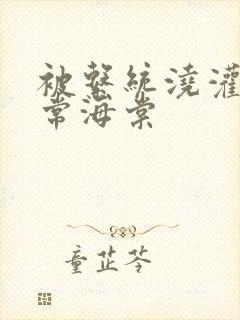 被繫統澆灌
常海棠
童芷苓